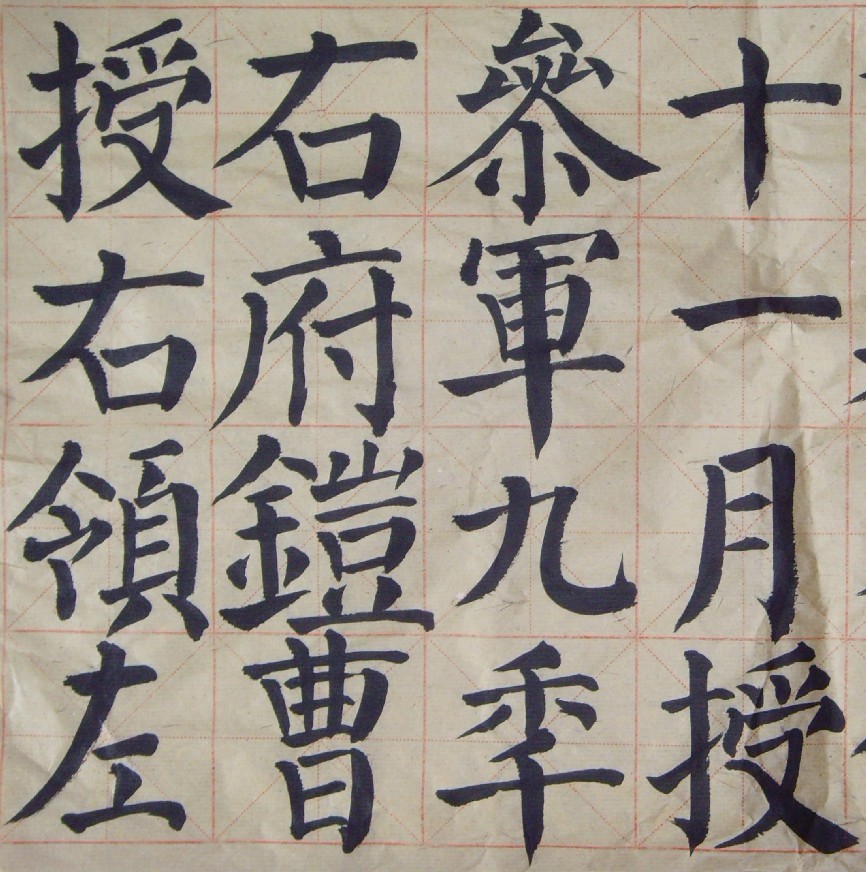 授右領左
右府鎧曹
參軍九秊
十一月授